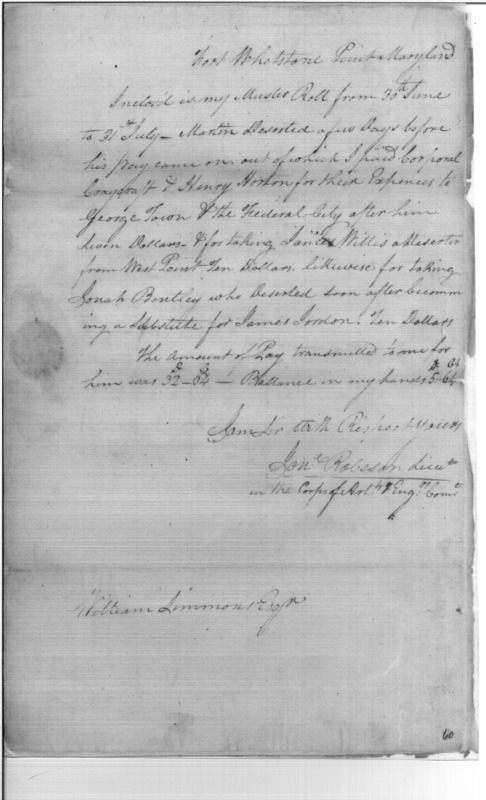 Fort Whetstone Point Maryland
Inclos'd is my Muster Roll from 30th June
to 31st July – Martin Deserted a few Days before
his pay came on. out of which I paid Corporal
Coaycraft & Henry Horton for their Expences to
George Town & the Federal City after him
Seven Dollars & for taking James Willis a Deserter
from West Point Ten Dollars likewise for taking
Jonah Bentley who Deserted soon after becomm
ing a Substitute for James Jordon. Ten Dollars
The Amount of Pay transmitted to me for
D. Cts
him was 32–64 – Ballance in my hands 5–64
I am Sir with Respect Yours
Jona Robeson Lieut
in the Corps of Arty & Engrs Comd
William Simmons Esqr
60